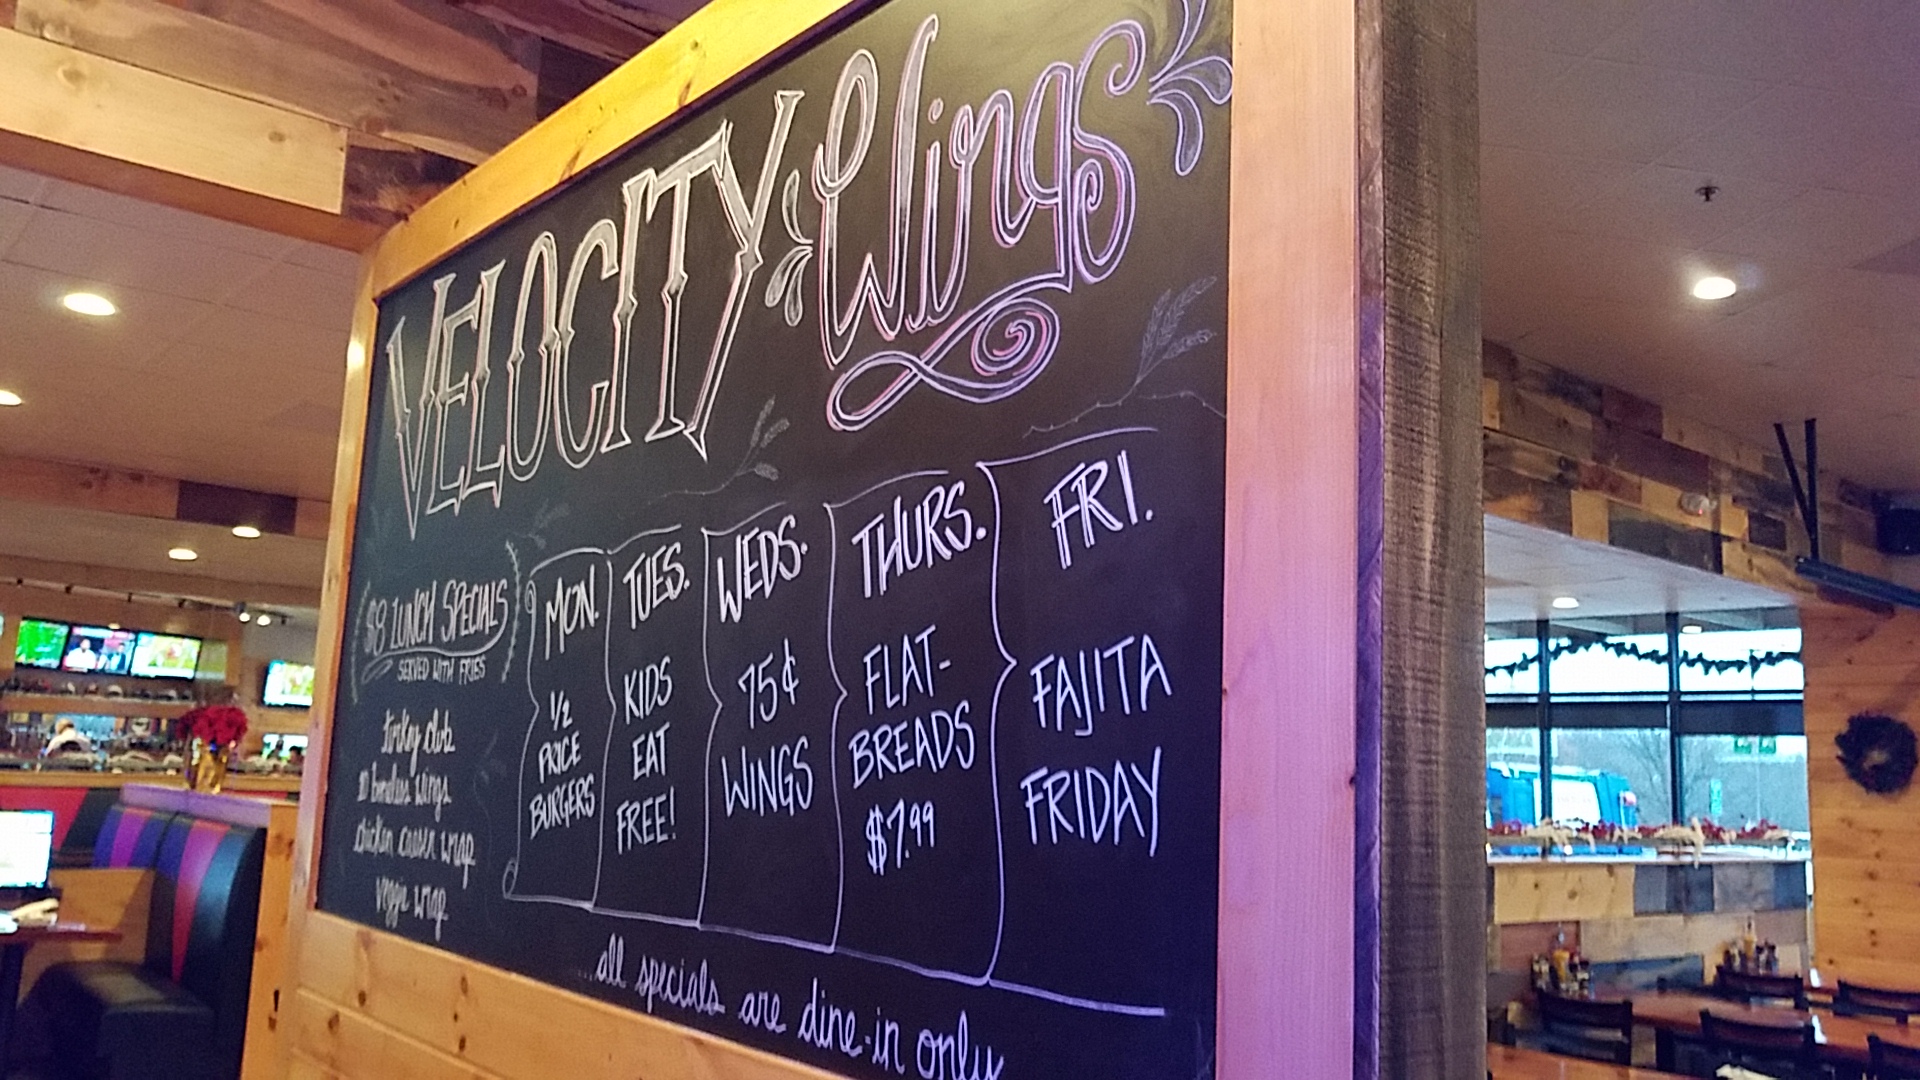 VELOCITY Wings
$8 LUNCH SPECIALS
SERVED WITH FRIES
turkey club
10 boneless wings
chicken caesar wrap
veggie wrap
MON.
1/2
PRICE
BURGERS
TUES.
KIDS
EAT
FREE!
WEDS.
75¢
WINGS
THURS.
FLAT-
BREADS
$7.99
FRI.
FAJITA
FRIDAY
...all specials are dine-in only